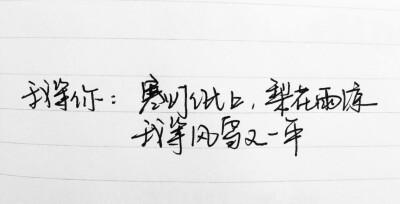 我等你：寒门纸上，梨花雨凉
我等风雪又一年